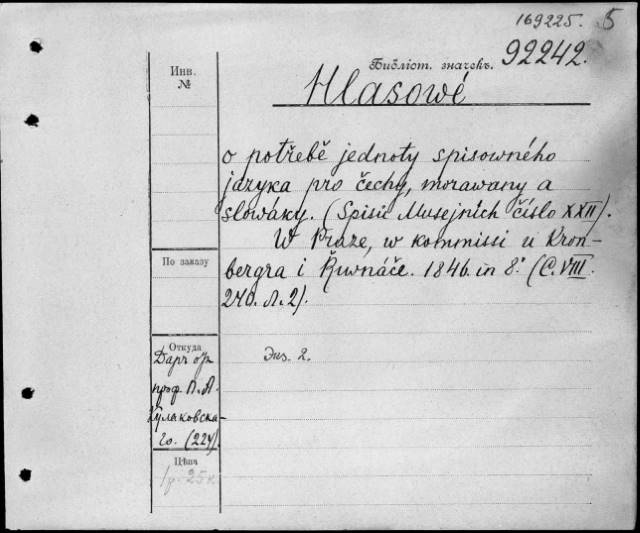 169225. 5
Библіот. значекъ.
92242.
Инв.
№
Hlasowé
o potřebě jednoty spisowného
jazyka pro čechy, morawany a
slowáky. (Spisů Musejních číslo XXII).
W Praze, w kommissi u Kron-
bergra i Řiwnáče. 1846. in 8.° (C. VIII.
240. л. 2).
По заказу
Откуда
Даръ отъ
проф. П. А.
Кулаковска-
го. (224)
Экз. 2.
Цѣна
1 р. 25 к